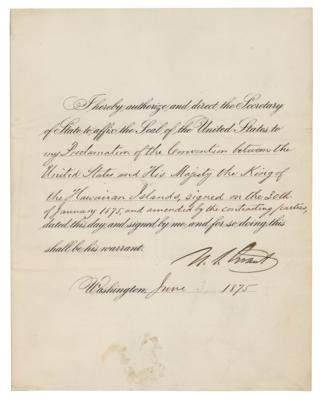 I hereby authorize and direct the Secretary
of State to affix the Seal of the United States to
my Proclamation of the Convention between the
United States and His Majesty the King of
the Hawaiian Islands, signed on the 30th
of January 1875, and amended by the contracting parties,
dated this day, and signed by me, and for so doing this
shall be his warrant.
U. S. Grant
Washington, June 3, 1875